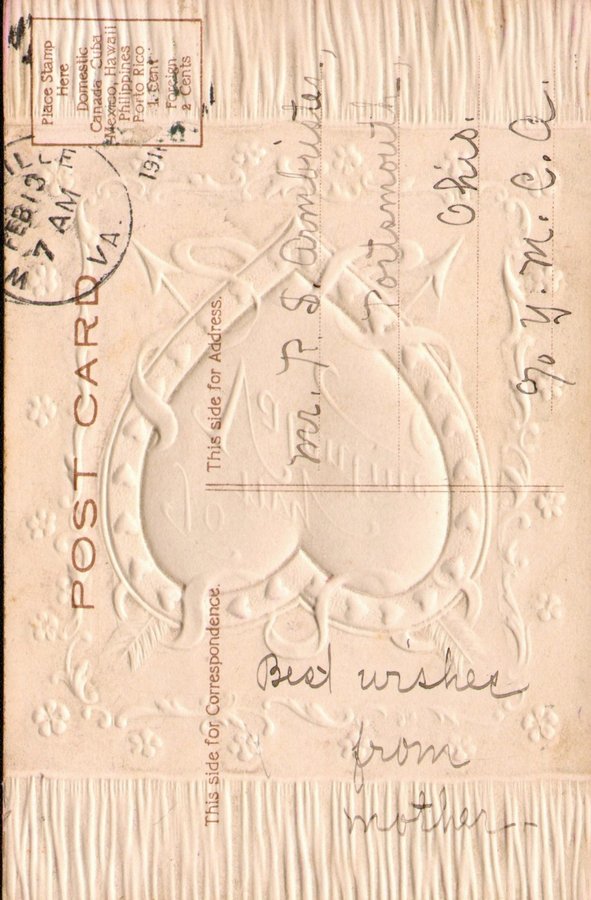 Place Stamp
Here
Domestic
Canada, Cuba
Mexico, Hawaii
Philippines
Porto Rico
1 Cent
Foreign
2 Cents
FEB 13
7 AM
VA.
191
POST CARD
This side for Correspondence.
This side for Address.
Best wishes
from
mother-
Mr. R. S. Armbrister,
Portsmouth,
Ohio.
% Y. M. C. A.